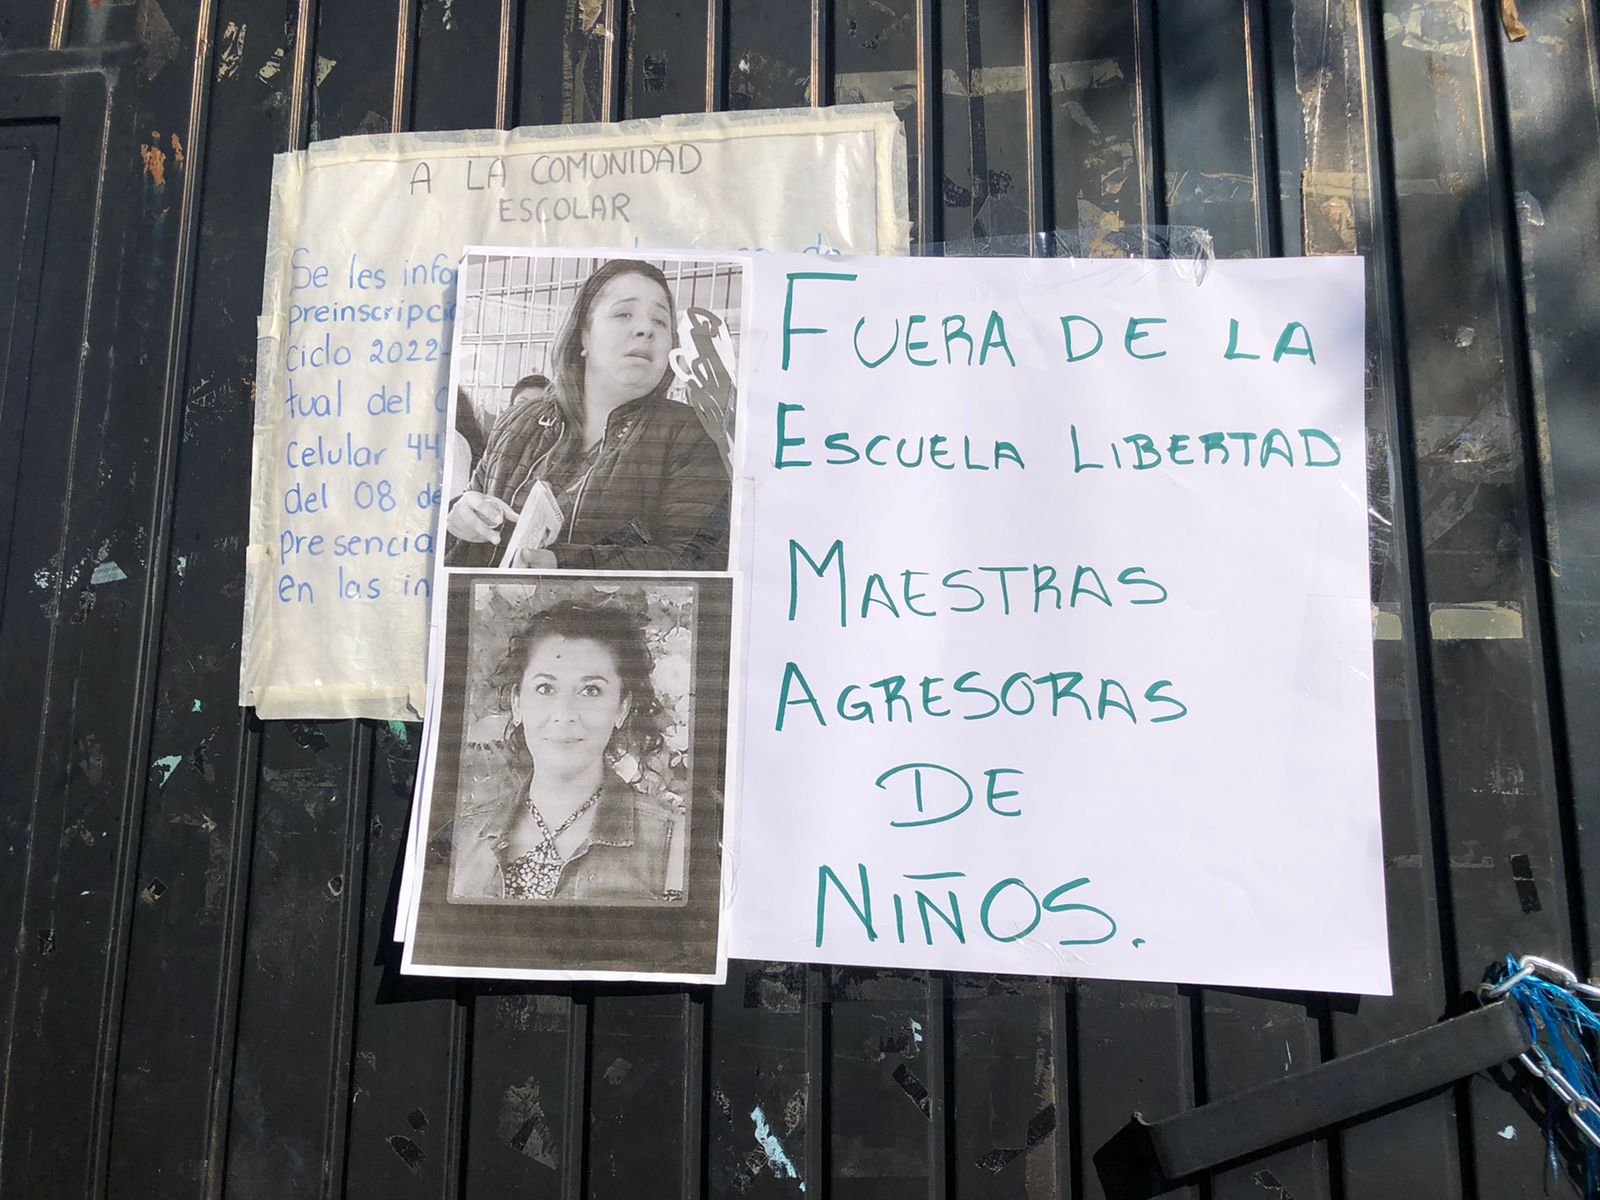 A LA COMUNIDAD
ESCOLAR
Se les
preinscripci
ciclo 2022-
tual del
Celular 44
del 08 de
presencia
en las in
FUERA DE LA
ESCUELA LIBERTAD
MAESTRAS
AGRESORAS
DE
NIÑOS.